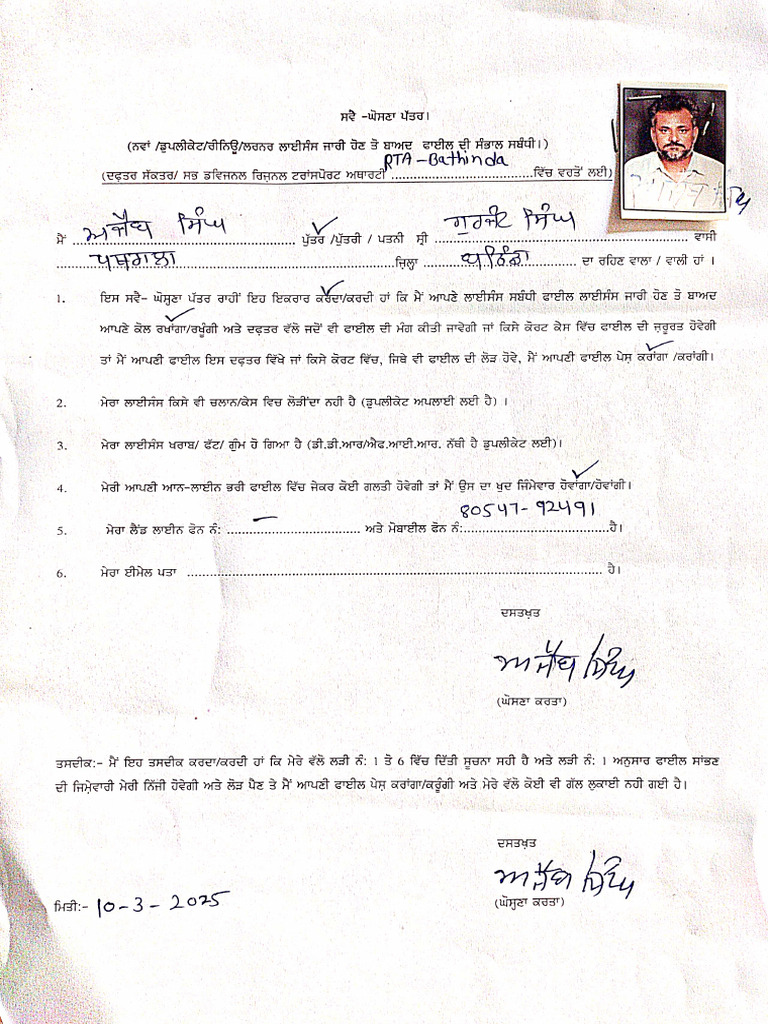 ਸਵੈ -ਘੋਸਣਾ ਪੱਤਰ।
(ਨਵਾਂ /ਡੁਪਲੀਕੇਟ/ਰੀਨਿਊ/ਲਰਨਰ ਲਾਈਸੰਸ ਜਾਰੀ ਹੋਣ ਤੋ ਬਾਅਦ ਫਾਈਲ ਦੀ ਸੰਭਾਲ ਸਬੰਧੀ।)
(ਦਫਤਰ ਸੱਕਤਰ/ ਸਭ ਡਵਿਜਨਲ ਰਿਜ਼ਨਲ ਟਰਾਂਸਪੋਰਟ ਅਥਾਰਟੀ RTA-Bathinda ਵਿੱਚ ਵਰਤੋਂ ਲਈ)
ਮੈਂ ਅਜੈਬ ਸਿੰਘ ਪੁੱਤਰ /ਪੁੱਤਰੀ / ਪਤਨੀ ਸ੍ਰੀ ਗੁਰਜੰਟ ਸਿੰਘ ਵਾਸੀ
ਜ਼ਿਲ੍ਹਾ ਬਠਿੰਡਾ ਦਾ ਰਹਿਣ ਵਾਲਾ / ਵਾਲੀ ਹਾਂ ।
1. ਇਸ ਸਵੈ- ਘੋਸ਼ਣਾ ਪੱਤਰ ਰਾਹੀਂ ਇਹ ਇਕਰਾਰ ਕਰਦਾ/ਕਰਦੀ ਹਾਂ ਕਿ ਮੈਂ ਆਪਣੇ ਲਾਈਸੰਸ ਸਬੰਧੀ ਫਾਈਲ ਲਾਈਸੰਸ ਜਾਰੀ ਹੋਣ ਤੋ ਬਾਅਦ
ਆਪਣੇ ਕੋਲ ਰਖਾਂਗਾ/ਰਖੂੰਗੀ ਅਤੇ ਦਫਤਰ ਵੱਲੋ ਜਦੋਂ ਵੀ ਫਾਈਲ ਦੀ ਮੰਗ ਕੀਤੀ ਜਾਵੇਗੀ ਜਾਂ ਕਿਸੇ ਕੋਰਟ ਕੇਸ ਵਿੱਚ ਫਾਈਲ ਦੀ ਜ਼ਰੂਰਤ ਹੋਵੇਗੀ
ਤਾਂ ਮੈਂ ਆਪਣੀ ਫਾਈਲ ਇਸ ਦਫਤਰ ਵਿੱਖੇ ਜਾਂ ਕਿਸੇ ਕੋਰਟ ਵਿੱਚ, ਜਿਥੇ ਵੀ ਫਾਈਲ ਦੀ ਲੋੜ ਹੋਵੇ, ਮੈਂ ਆਪਣੀ ਫਾਈਲ ਪੇਸ਼ ਕਰਾਂਗਾ /ਕਰਾਂਗੀ।
2. ਮੇਰਾ ਲਾਈਸੰਸ ਕਿਸੇ ਵੀ ਚਲਾਨ/ਕੇਸ ਵਿਚ ਲੋੜੀਂਦਾ ਨਹੀ ਹੈ (ਡੁਪਲੀਕੇਟ ਅਪਲਾਈ ਲਈ ਹੈ) ।
3. ਮੇਰਾ ਲਾਈਸੰਸ ਖਰਾਬ/ ਫੱਟ/ ਗੁੰਮ ਹੋ ਗਿਆ ਹੈ (ਡੀ.ਡੀ.ਆਰ/ਐਫ.ਆਈ.ਆਰ. ਨੱਥੀ ਹੈ ਡੁਪਲੀਕੇਟ ਲਈ)।
4. ਮੇਰੀ ਆਪਣੀ ਆਨ-ਲਾਈਨ ਭਰੀ ਫਾਈਲ ਵਿੱਚ ਜੇਕਰ ਕੋਈ ਗਲਤੀ ਹੋਵੇਗੀ ਤਾਂ ਮੈਂ ਉਸ ਦਾ ਖੁਦ ਜਿੰਮੇਵਾਰ ਹੋਵਾਂਗਾ/ਹੋਵਾਂਗੀ।
5. ਮੇਰਾ ਲੈਂਡ ਲਾਈਨ ਫੋਨ ਨੰ: – ਅਤੇ ਮੋਬਾਈਲ ਫੋਨ ਨੰ: 80547-92491 ਹੈ।
6. ਮੇਰਾ ਈਮੇਲ ਪਤਾ ਹੈ।
ਦਸਤਖ਼ਤ
ਅਜੈਬ ਸਿੰਘ
(ਘੋਸਣਾ ਕਰਤਾ)
ਤਸਦੀਕ:- ਮੈਂ ਇਹ ਤਸਦੀਕ ਕਰਦਾ/ਕਰਦੀ ਹਾਂ ਕਿ ਮੇਰੇ ਵੱਲੋ ਲੜੀ ਨੰ: 1 ਤੋ 6 ਵਿੱਚ ਦਿੱਤੀ ਸੂਚਨਾ ਸਹੀ ਹੈ ਅਤੇ ਲੜੀ ਨੰ: 1 ਅਨੁਸਾਰ ਫਾਈਲ ਸਾਂਭਣ
ਦੀ ਜਿਮੇਂਵਾਰੀ ਮੇਰੀ ਨਿੱਜੀ ਹੋਵੇਗੀ ਅਤੇ ਲੋੜ ਪੈਣ ਤੇ ਮੈਂ ਆਪਣੀ ਫਾਈਲ ਪੇਸ਼ ਕਰਾਂਗਾ/ਕਰੂੰਗੀ ਅਤੇ ਮੇਰੇ ਵੱਲੋ ਕੋਈ ਵੀ ਗੱਲ ਲੁਕਾਈ ਨਹੀ ਗਈ ਹੈ।
ਦਸਤਖ਼ਤ
ਅਜੈਬ ਸਿੰਘ
(ਘੋਸ਼ਣਾ ਕਰਤਾ)
ਮਿਤੀ:- 10-3-2025